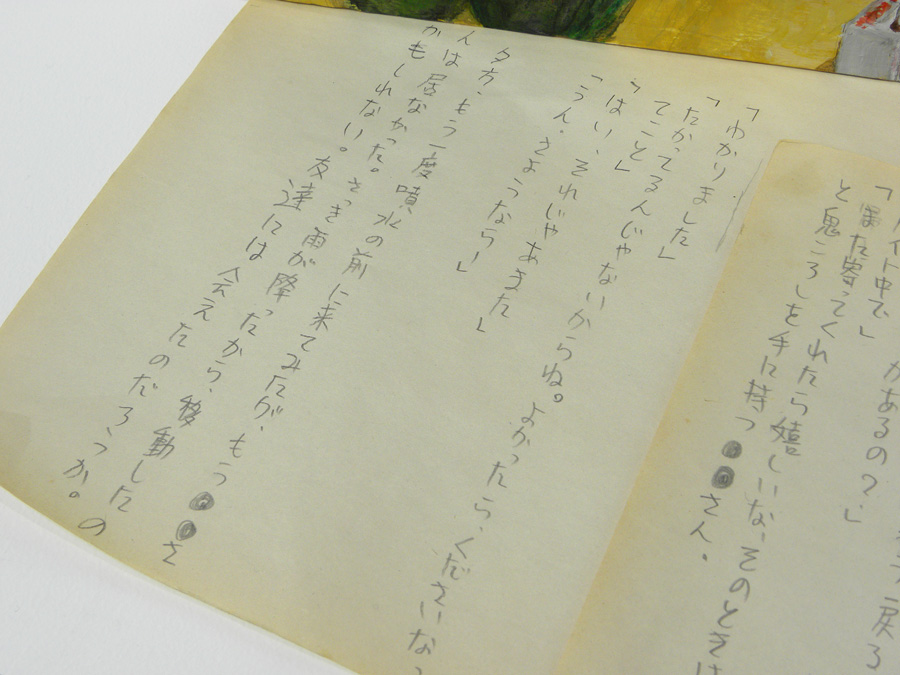 戻る
があるの？」
イト中で」
「また寄ってくれたら嬉しいな、そのときは
と鬼ころしを手に持つ●●さん。
「わかりました」
「たかってるんじゃないからね。よかったら、くださいなっ
てこと」
「はい、それじゃあまた」
「うん。さようならー」
夕方、もう一度噴水の前に来てみたが、もう●●さ
んは居なかった。さっき雨が降ったから、移動した
かもしれない。友達には会えたのだろうか。の